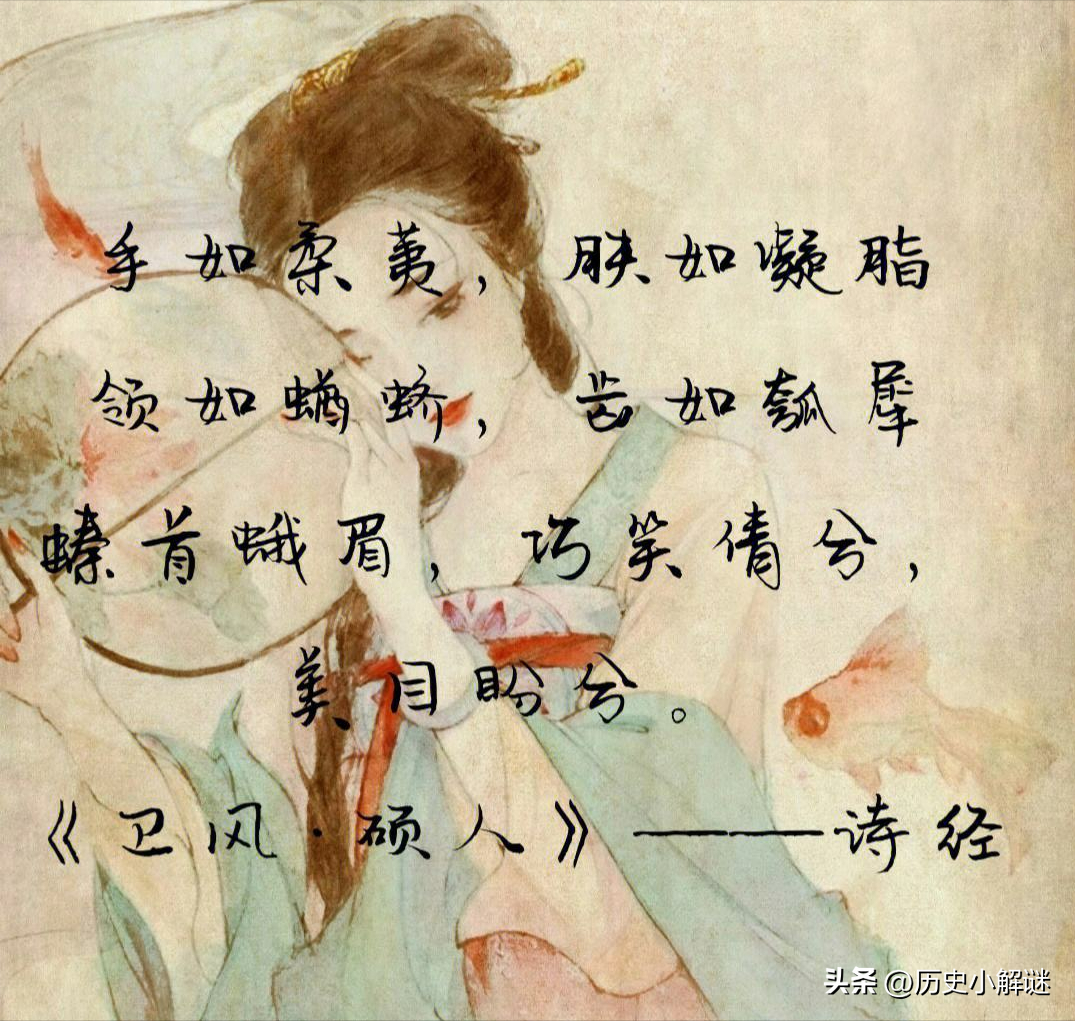 手如柔荑，肤如凝脂
领如蝤蛴，齿如瓠犀
螓首蛾眉，巧笑倩兮，
美目盼兮。
《卫风·硕人》———诗经
头条 @历史小解谜